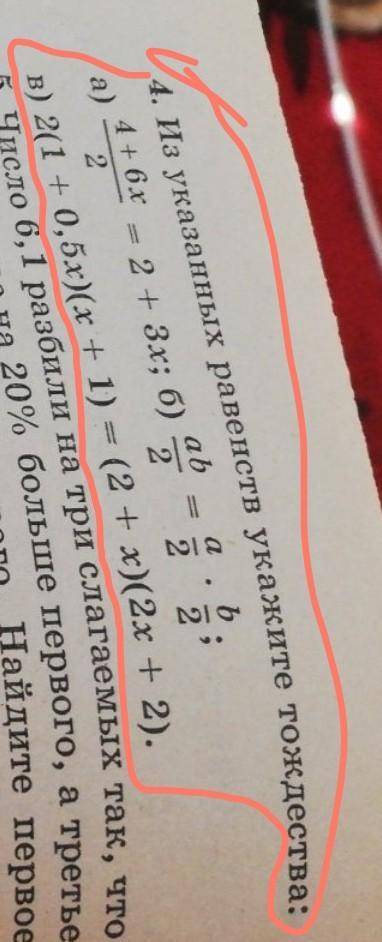 4. Из указанных равенств укажите тождества:
а) \frac{4 + 6x}{2} = 2 + 3x; б) \frac{ab}{2} = \frac{a}{2} · \frac{b}{2};
в) 2(1 + 0,5x)(x + 1) = (2 + x)(2x + 2).
5. Число 6,1 разбили на три слагаемых так, что
на 20% больше первого, а третье
Найдите первое